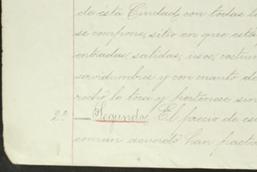 de ésta Ciudad, con todas l
se compone, sitio en que está
entradas, salidas, usos, costum
servidumbres y con cuanto de
recho la toca y pertenece sin
2ª — Segunda. El precio de es
comun acuerdo han pacta